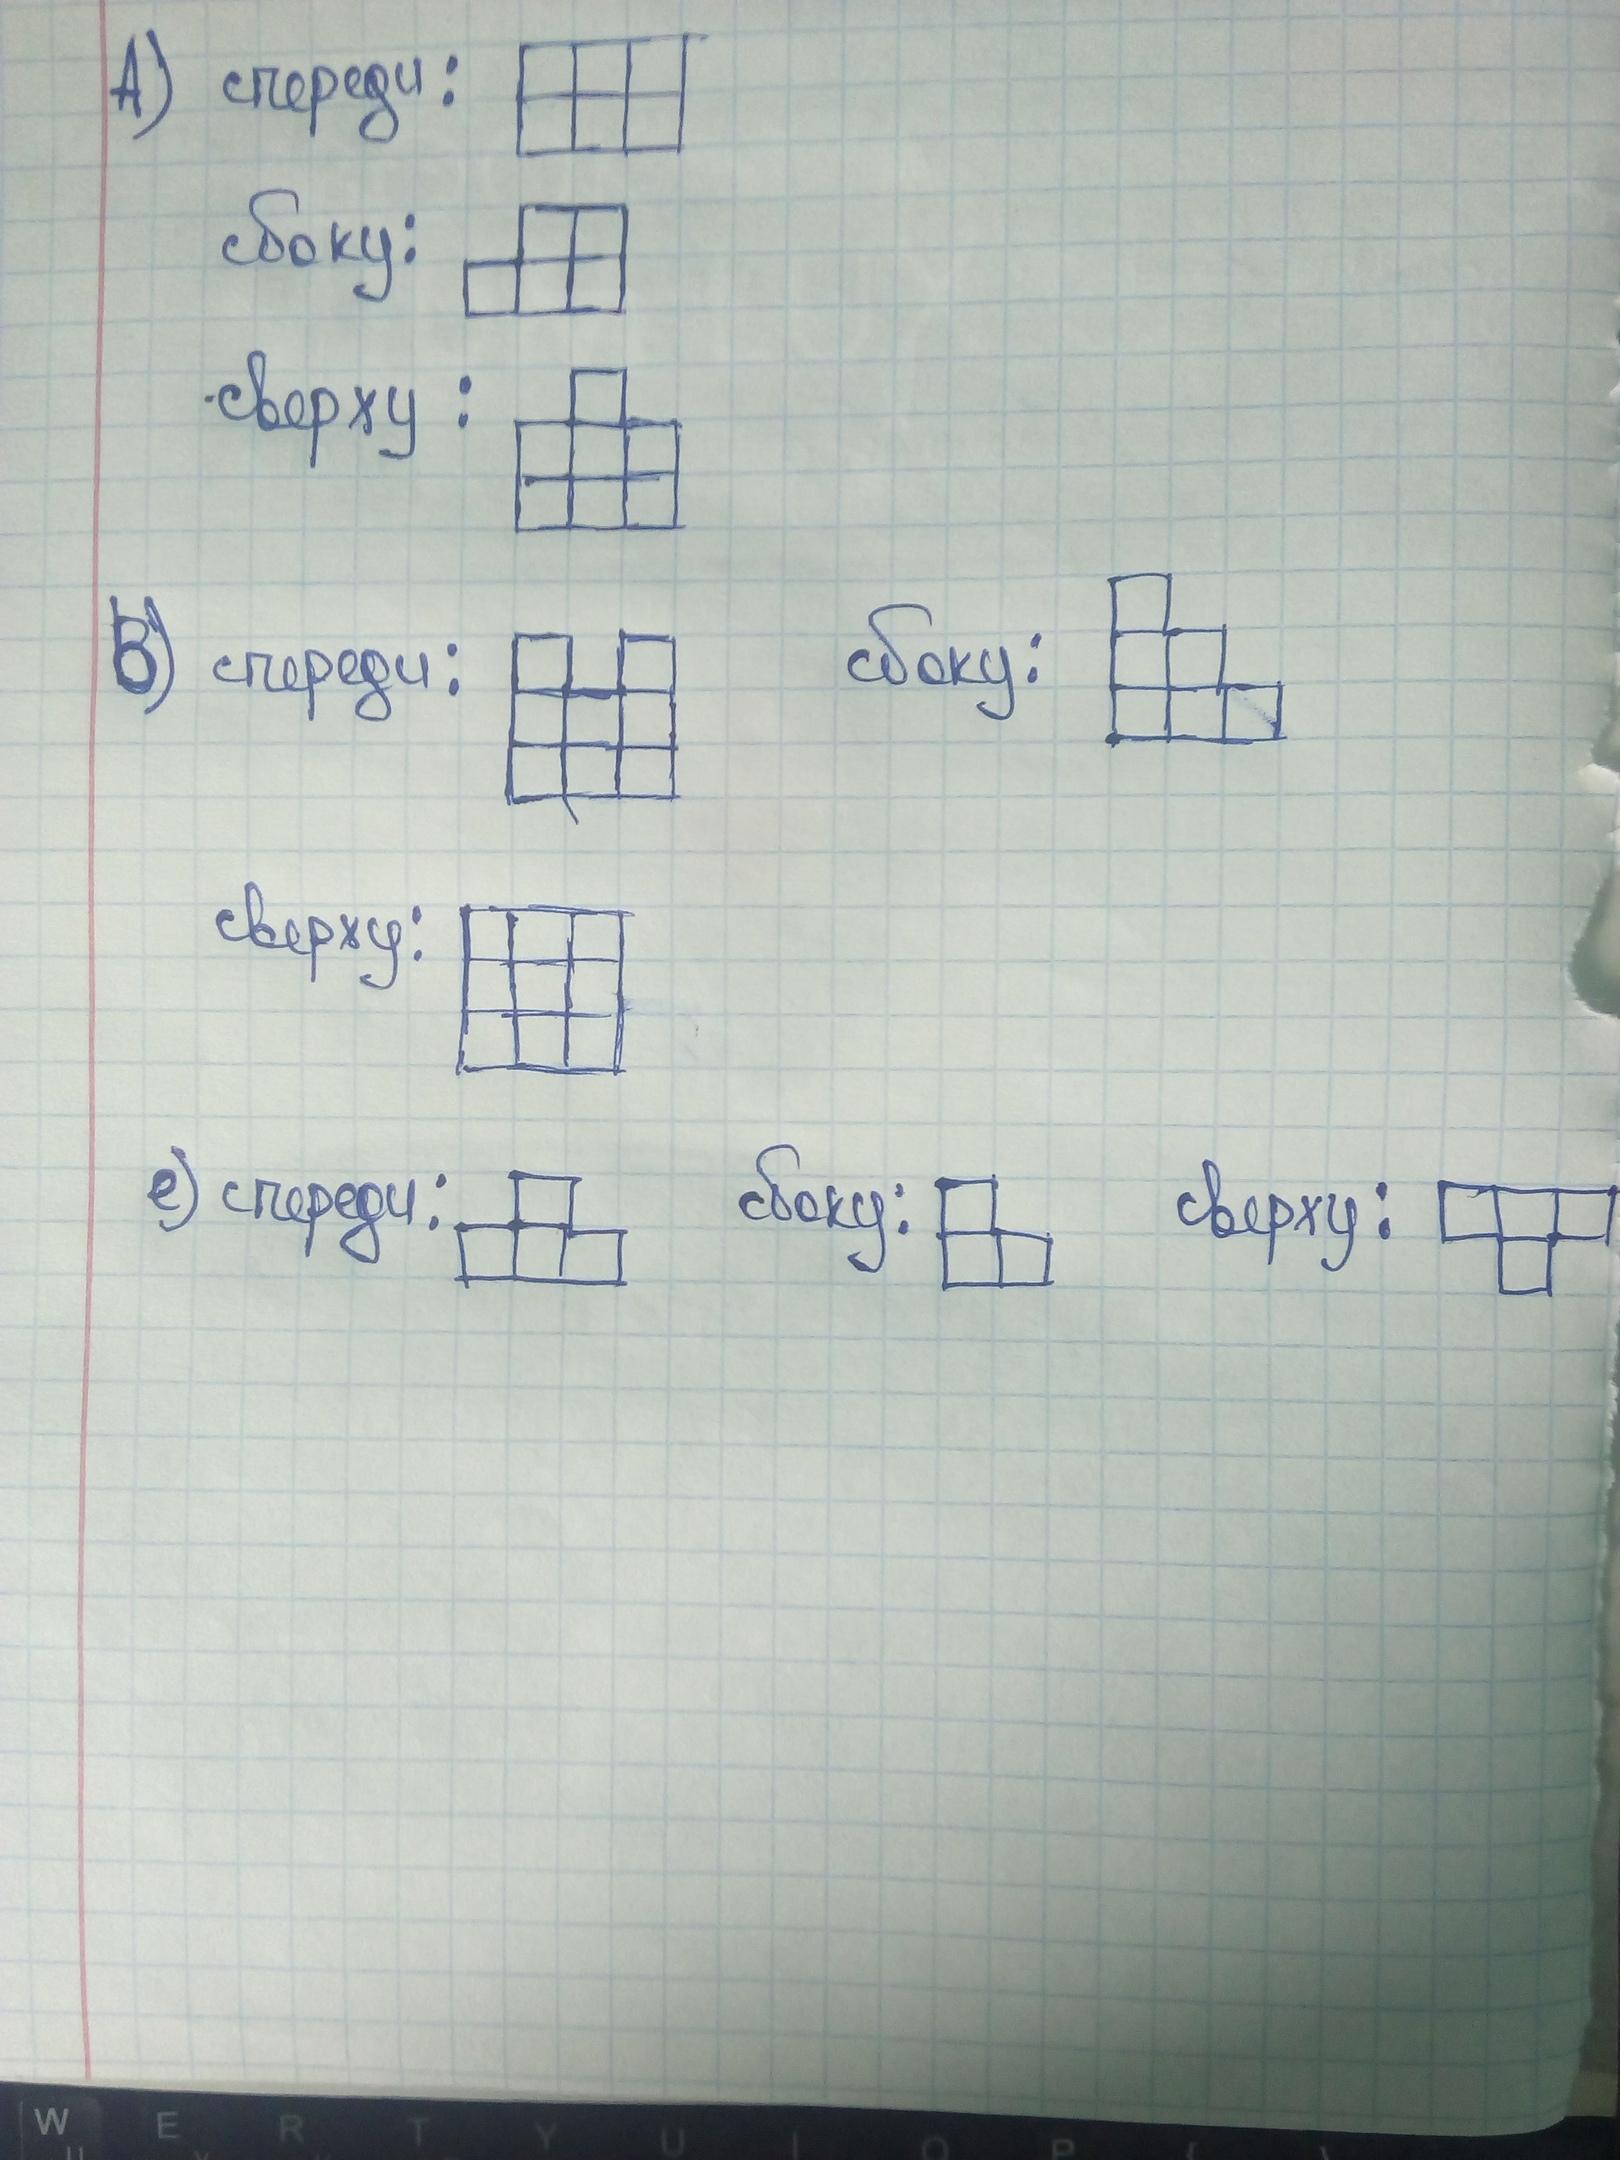 А) спереди:
сбоку:
сверху:
В) спереди:
сбоку:
сверху:
е) спереди:
сбоку:
сверху:
W E R T Y U I O P {